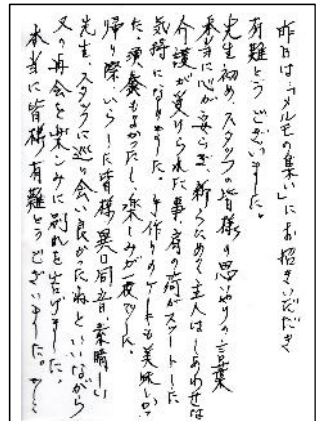 昨日は「メルモの集い」にお招きいただき
有難とうございました。
先生初め、スタッフの皆様の思いやりの言葉
本当に心が安らぎ、新らためて主人はしあわせな
介護が受けられた事、肩の荷がスゥートした
気持になりました。手作りのケーキも美味しかっ
た、演奏もよかったし、楽しみが一夜でした。
帰り際いらした皆様異口同音、素晴しい
先生、スタッフに巡り会い良かったねといいながら
又の再会を楽しみに別れを告げました。
本当に皆様、有難とうございました。